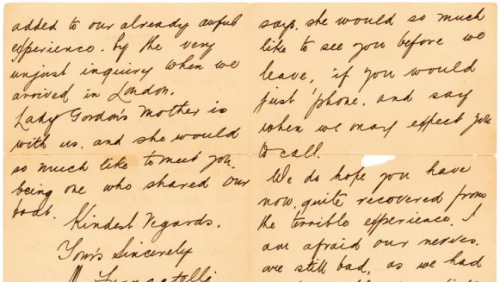 added to our already awful
experience. by the very
unjust inquiry when we
arrived in London.
Lady Gordon's Mother is
with us. and she would
so much like to meet you.
being one who shared our
boat.
Kindest Regards.
Yours Sincerely
says, she would so much
like to see you before we
leave, if you would
just 'phone. and say
when we may expect you
to call.
We do hope you have
now, quite recovered from
the terrible experience. I
am afraid our nerves.
are still bad, as we had